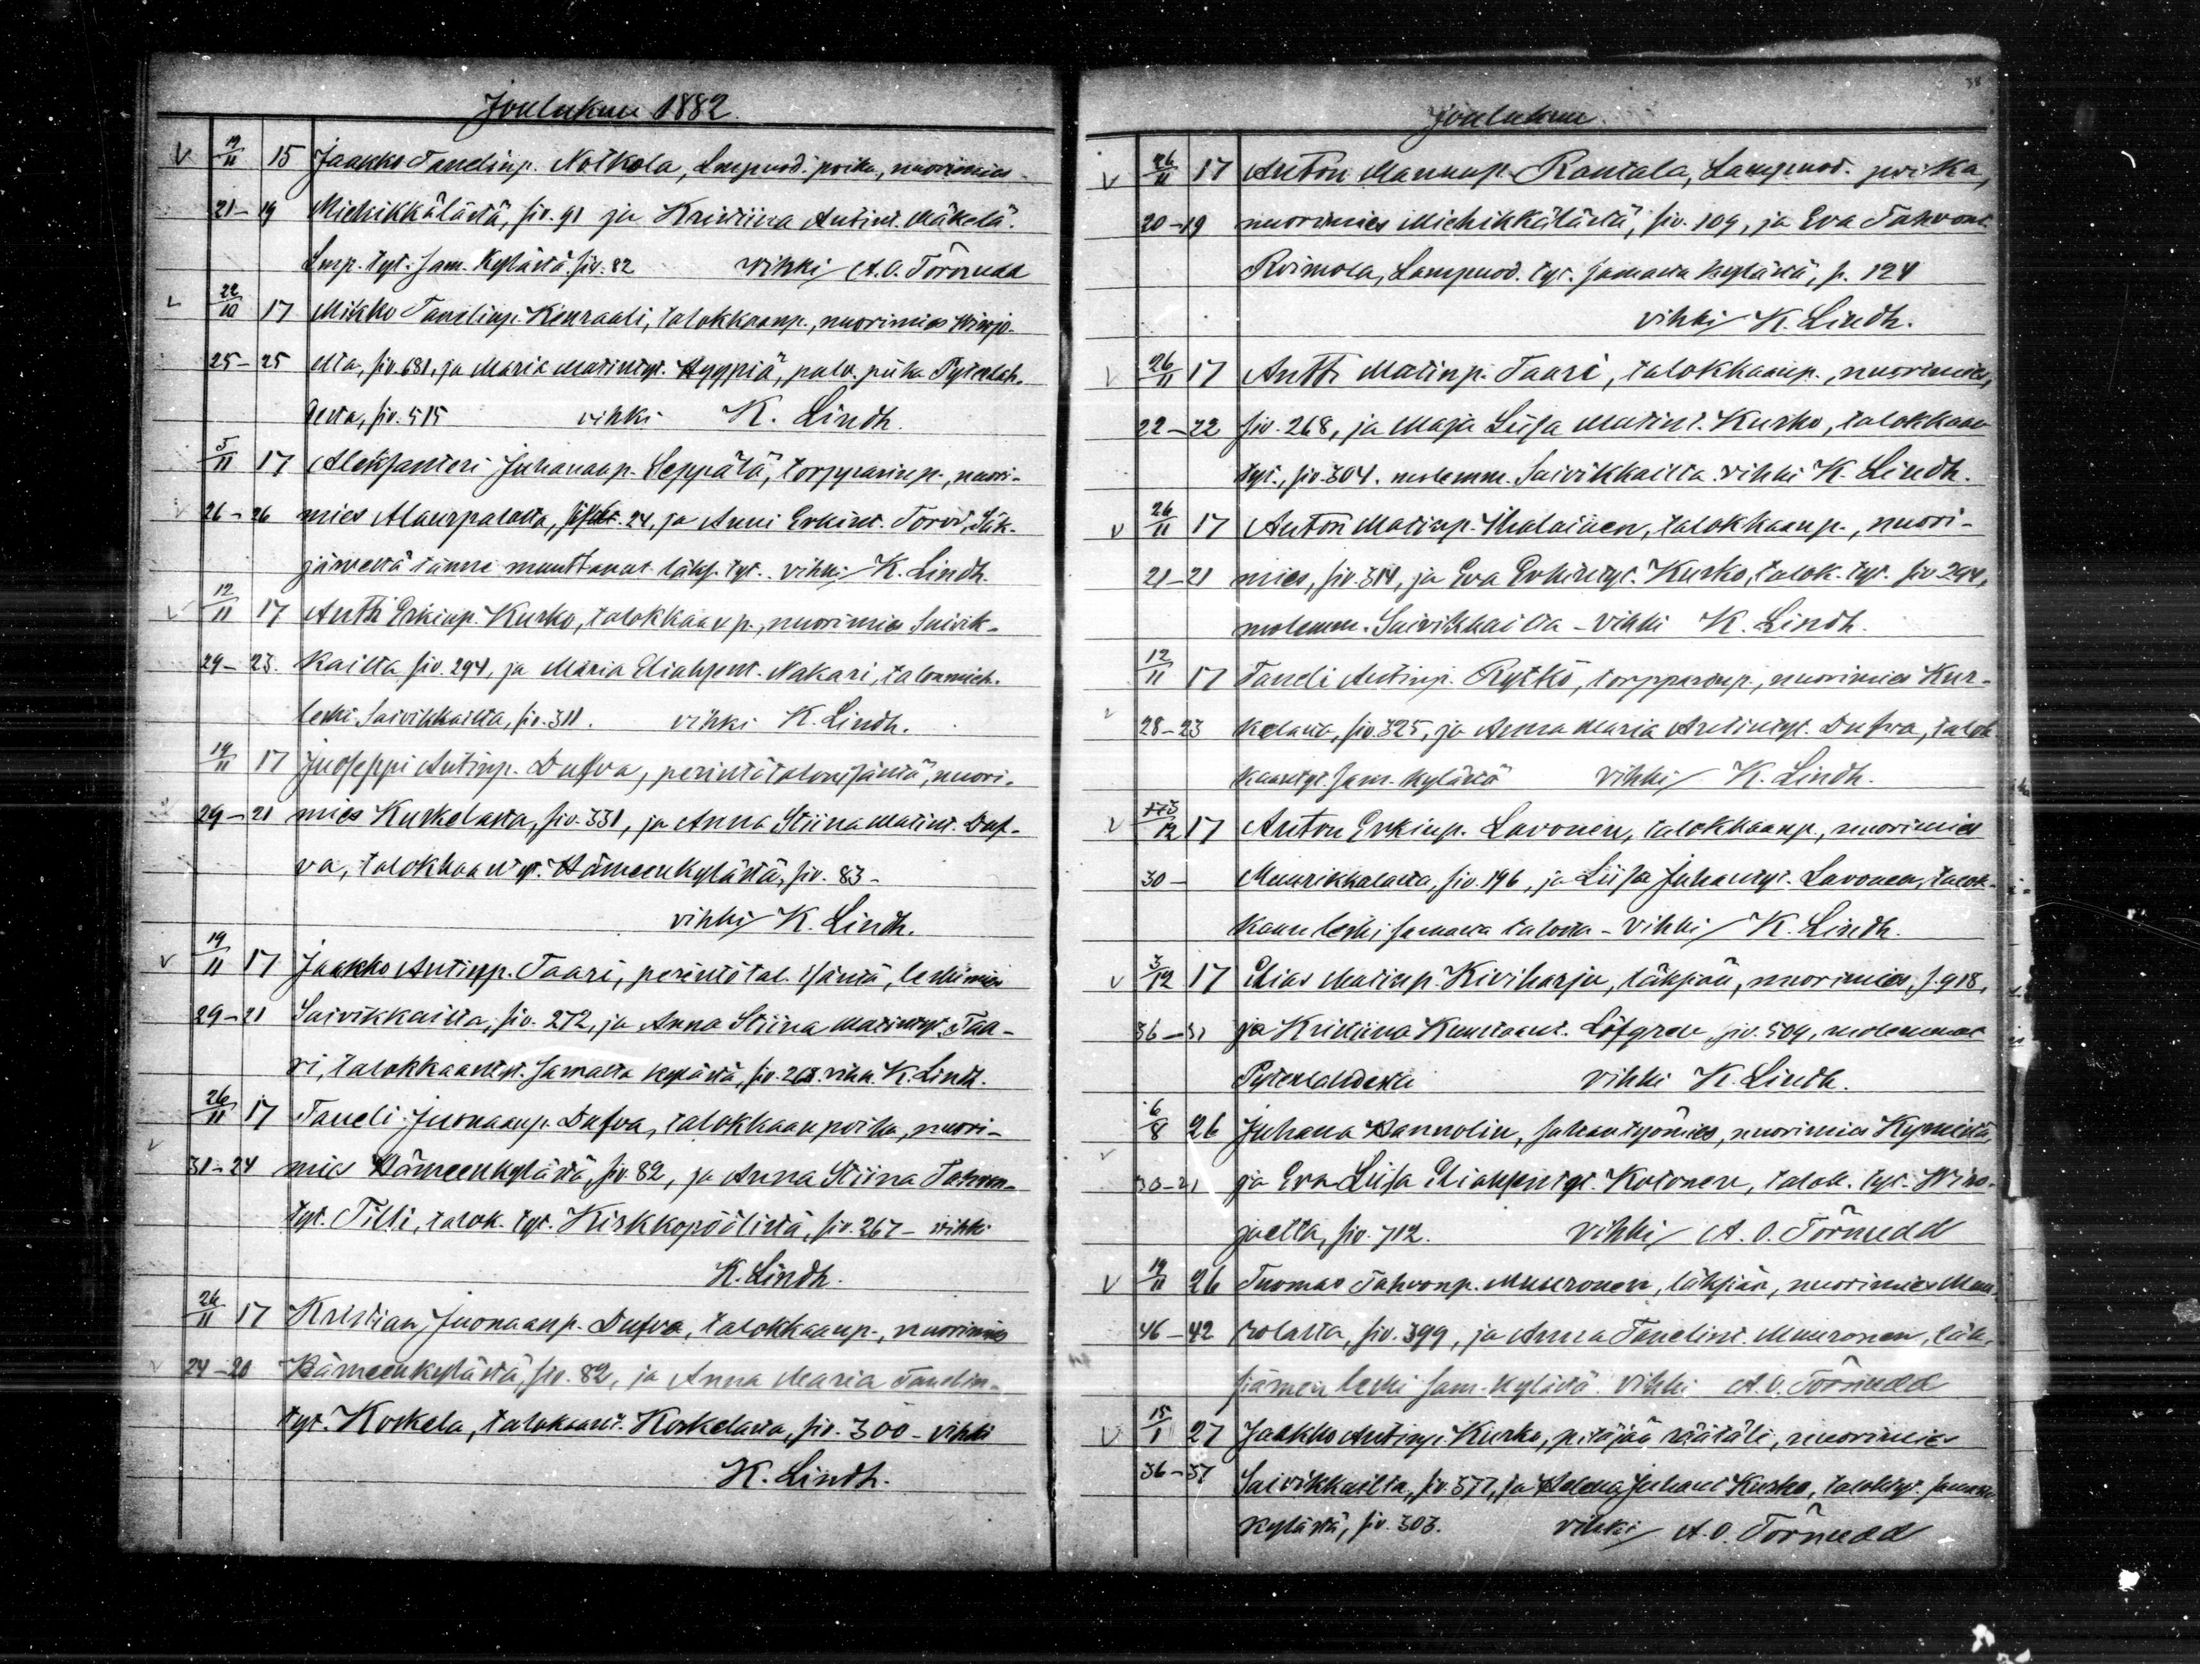 Joulukuu 1882.
19/11 15 Jaakko Tanelinp. Notkola, Lmpuod. poika, nuorimies
21-19 Miehikkälästä, siv. 91 ja Kristiina Antint. Mäkelä.
Lmp. tyt. sam. kylästä siv. 82 vihki A. O. Törnudd
22/10 17 Mikko Tanelinp. Kenraali, talokkaanp., nuorimies Wirojo-
25-25 elta, siv. 681, ja Maria Matintyt. Hyyppiä, palv. piika Pyterlah-
desta, siv. 515 vihki K. Lindh.
5/11 17 Aleksanteri Juhananp. Seppälä, torpparinp., nuori-
26-26 mies Alaurpalasta, 24, ja Anni Erkint. Torvi, Säk-
järveltä tänne muuttanut läks. tyt. vihki K. Lindh.
12/11 17 Antti Erkinp. Kurko, talokkaan p., nuorimies Saivik-
29-23. kailta siv. 294, ja Maria Eliaksent. Nakari, talonmieh.
leski Saivikkailta, siv. 311. vihki K. Lindh.
19/11 17 Juoseppi Antinp. Dufva, perintötalonisäntä, nuori-
29-21 mies Kurkelasta, siv. 331, ja Anna Stiina Matint. Duf-
va, talokkaantyt. Hämeenkylästä, siv. 83-
vihki K. Lindh.
19/11 17 Jaakko Antinp. Taari, perintötal. isäntä, leskimies
29-21 Saivikkailta, siv. 272, ja Anna Stiina Matintyt. Taa-
ri, talokkaantyt. samasta kylästä, siv. 268. vihk. K. Lindh.
26/11 17 Taneli Juonaanp. Dufva, talokkaan poika, nuori-
31-24 mies Hämeenkylästä, siv. 82, ja Anna Stiina Tahvon-
tyt. Tilli, talok. tyt. Kirkkopöölistä, siv. 267- vihki
K. Lindh.
26/11 17 Kristian Juonaanp. Dufva, talokkaanp., nuorimies
24-20 Hämeenkylästä, siv. 82, ja Anna Maria Tanelin-
tyt. Koskela, talokaant. Koskelasta, siv. 300- vihki
K. Lindh.
38
Joulukuu.
26/11 17 Anton Maunup. Rantala, Lampuod. poika,
20-19 nuorimies Miehikkälästä, siv. 109, ja Eva Tahvont.
Roimola, Lampuod. tyt. samasta kylästä, s. 124
vihki K. Lindh.
26/11 17 Antti Matinp. Taari, talokkaanp., nuorimies,
22-22 siv. 268, ja Maja Liisa Matint. Kurko, talokkaan
tyt., siv. 304. molemm. Saivikkailta. vihki K. Lindh.
26/11 17 Anton Matinp. Ihalainen, talokkaanp., nuori-
21-21 mies, siv. 314, ja Eva Erkintyt. Kurko, talok. tyt. siv 294,
molemm. Saivikkailta - vihki K. Lindh.
12/11 17 Taneli Antinp. Rytkö, torpparinp., nuorimies Kur-
28-23 kelasta, siv. 325, ja Anna Maria Antintyt. Dufva, talok
kaantyt. sam. kylästä vihki K. Lindh.
3/12 17 Anton Erkinp. Lavonen, talokkaanp., nuorimies
30- Muurikkalasta, siv. 196, ja Liisa Juhantyt. Lavonen, talok-
kaan leski samasta talosta - vihki K. Lindh.
3/12 17 Elias Matinp. Kiviharju, läksiän, nuorimies, s. 918,
36-31 ja Kristiina Kustaant. Löfgren, siv. 509, molemmat
Pyterlahdesta vihki K. Lindh.
6/8 26 Juhana Hannolin, sahan työmies, nuorimies Kymistä,
30-21 ja Eva Liisa Eliaksentyt. Kotonen, talok. tyt. Wiro-
joelta, siv. 712. vihki A. O. Törnudd
19/11 26 Tuomas Tahvonp. Muuronen, läksiän, nuorimies Muu-
46-42 rolasta, siv. 399, ja Anna Tanelint. Muuronen, läk-
siämen leski sam. kylästä. vihki A. O. Törnudd
15/1 27 Jaakko Antinp. Kurko, pitäjän räätäli, nuorimies
36-37 Saivikkailta, siv. 377, ja Helena Juhant Kurko, taloktyt. samasta
kylästä, siv. 303. vihki A. O. Törnudd